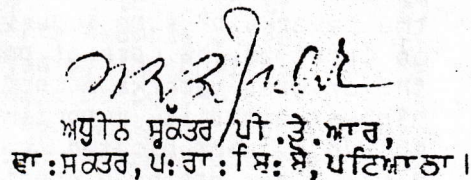 ਅਧੀਨ ਸਕੱਤਰ ਪੀ.ਤੇ.ਆਰ,
ਵਾ:ਸਕਤਰ, ਪ:ਰਾ:ਸਿ:ਬੋ, ਪਟਿਆਲਾ।